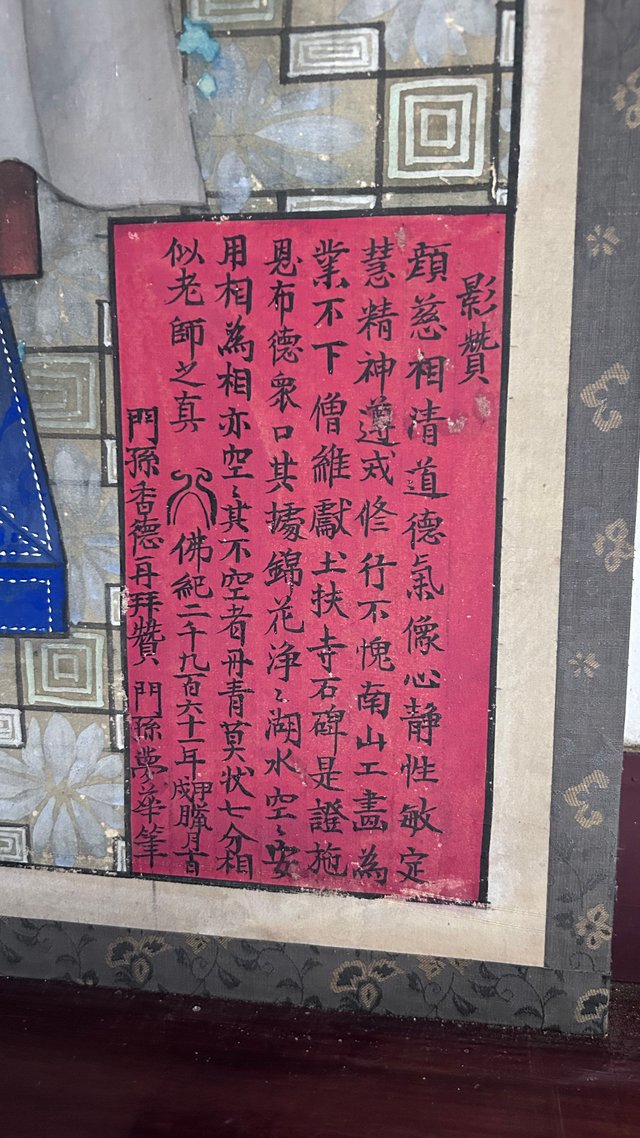 影贊
顔慈相清道德氣像心静性敏定
慧精神遵戒修行不愧南山工畵為
業不下僧維獻土扶寺石碑是證施
恩布德衆口其攄錦花浄〻湖水空〻安
用相為相亦空〻其不空者丹青莫状七分相
似老師之真 佛紀二千九百六十一年甲戌臘月
門孫香德再拜贊 門孫夢華筆